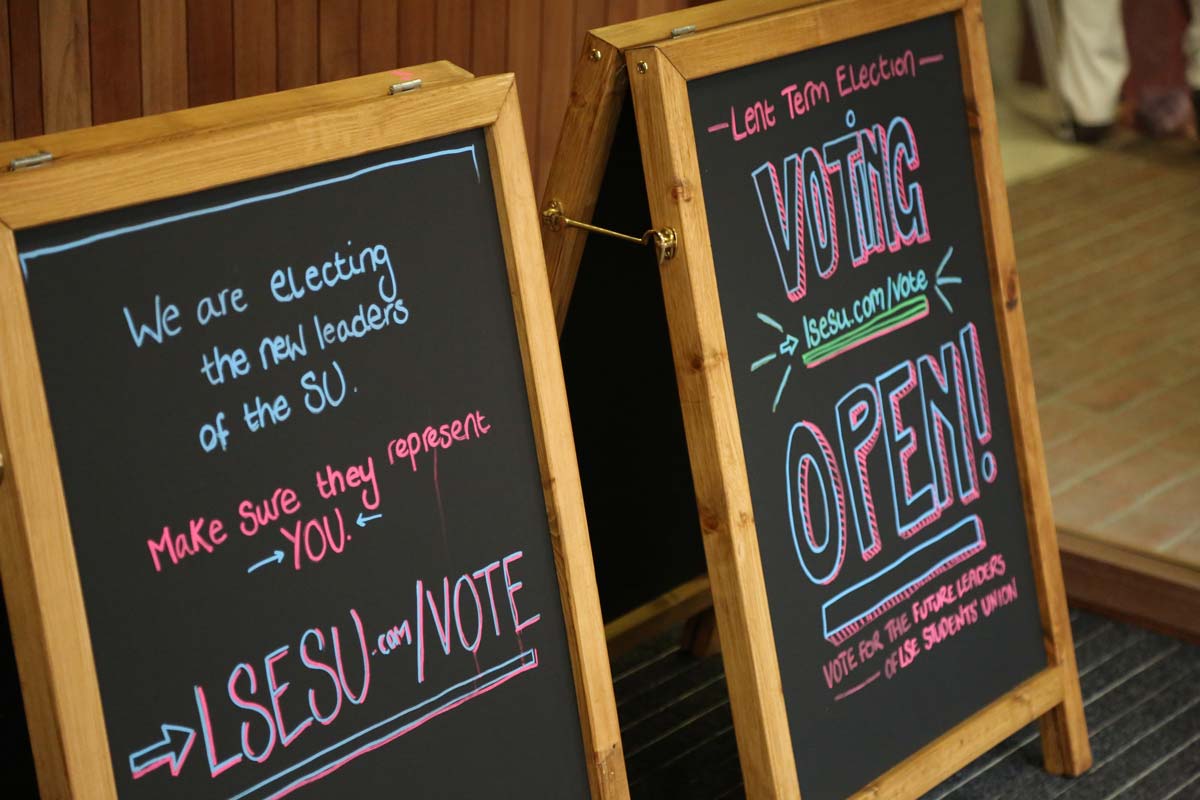 We are electing
the new leaders
of the SU.
Make sure they represent
YOU.
LSESU.com/VOTE
Lent Term Election
VOTiNG
lsesu.com/vote
OPEN!
VOTE FOR THE FUTURE LEADERS
OF LSE STUDENTS' UNION